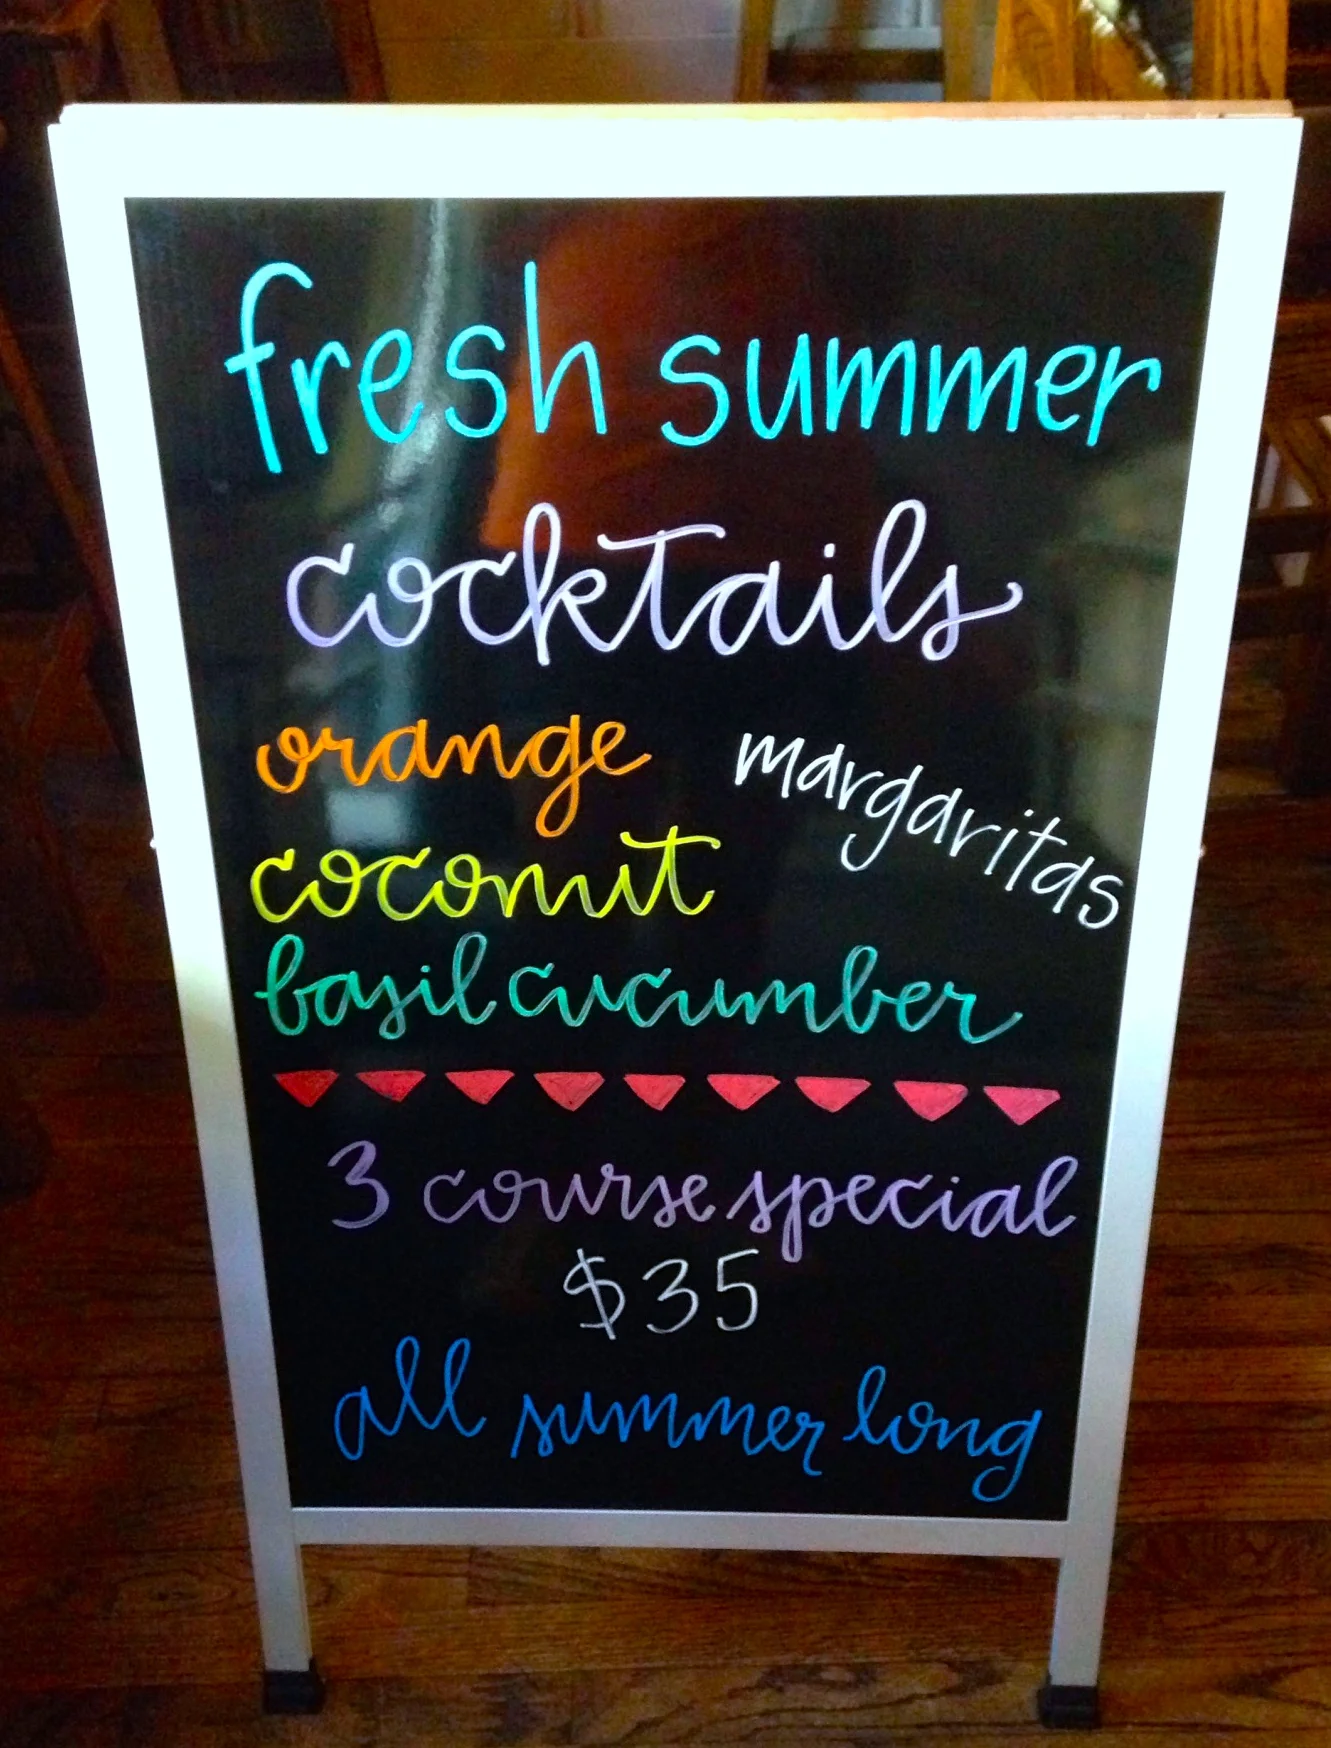 fresh summer
cocktails
orange
margaritas
coconut
basil cucumber
3 course special
$35
all summer long